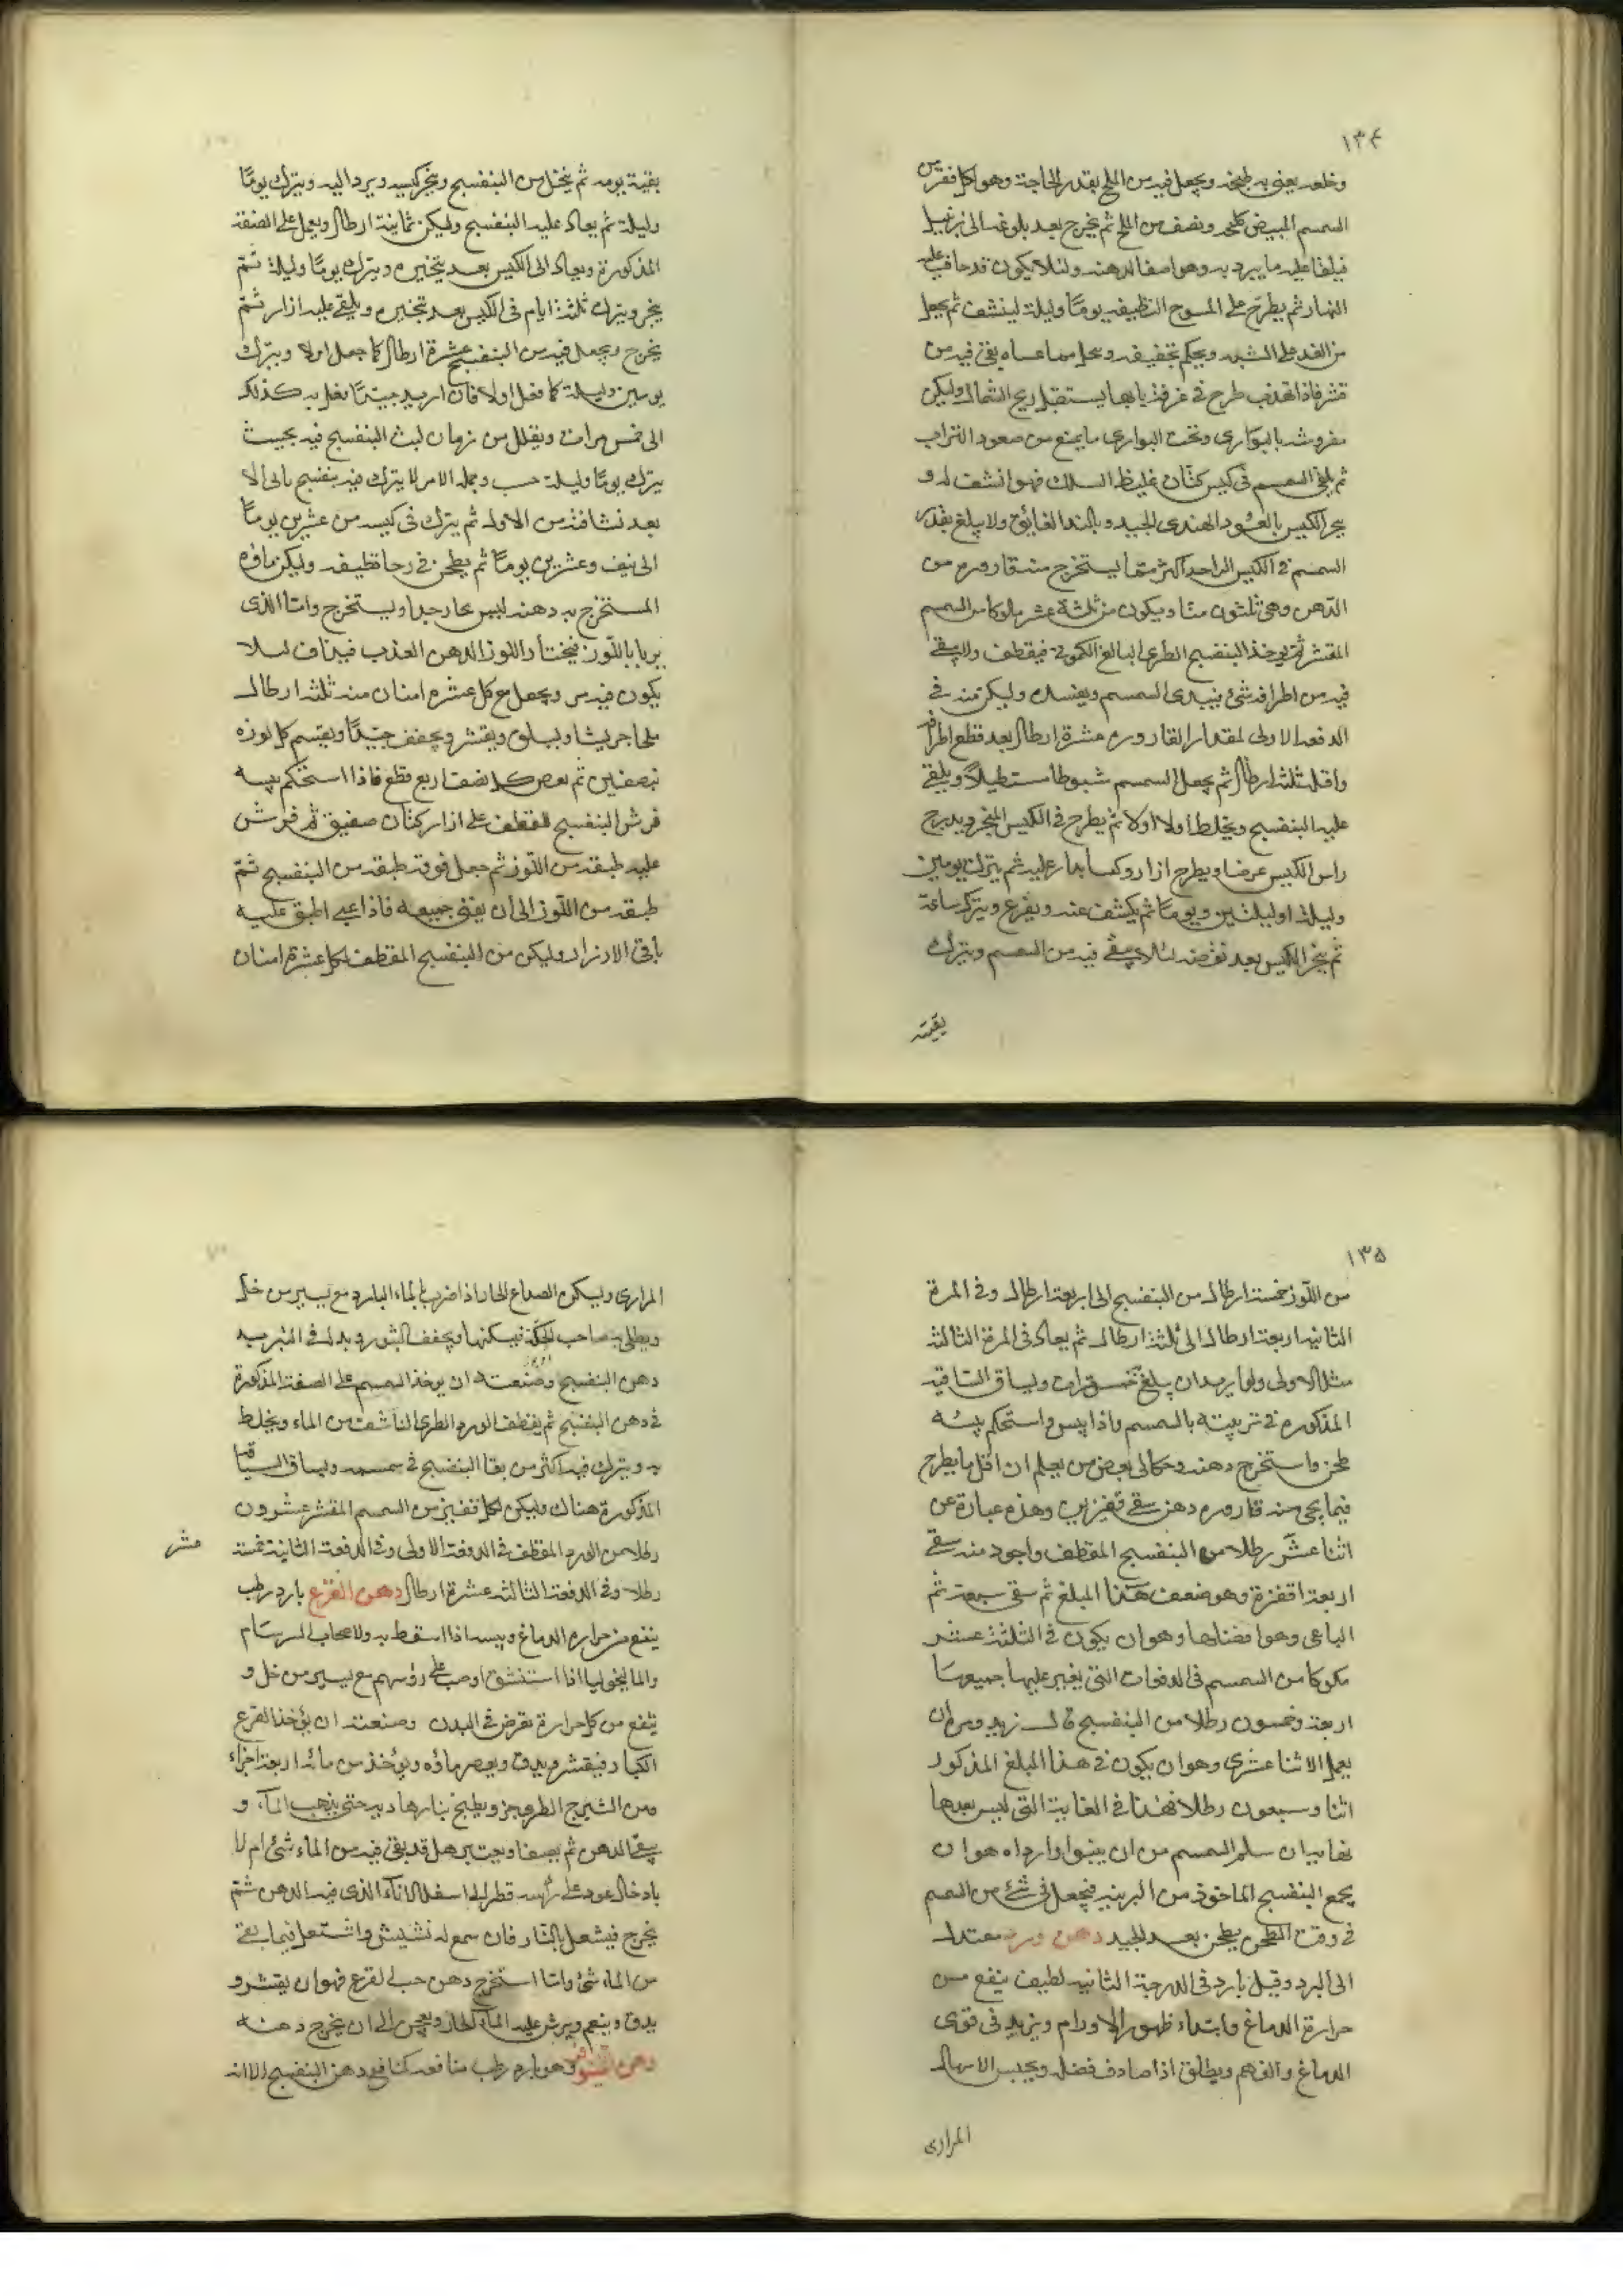 ١٣٤
وخلعه يعنى به طبخه ويجعل فيه من الملح بقدر الحاجة وهو لكل قفيز من
السمسم المبيض كلجه ونصف من الملح ثم يخرج بعد بلوغه الى
فيلقا عليه ما يبرد به وهو اصفا لدهنه ولئلا يكون قد حاف عليه
النار ثم يطرح على المسوح النظيفه يوما وليلة لينشف ثم يجعل
من الغد على ويحكم تجفيفه ويحل مما عساه بقى فيه من
قشر فاذا تهذب طرح فى غرفة بابها يستقبل ريح الشمال وليكن
مفروشه بالبوارى وتحت البوارى ما يمنع من صعود التراب
ثم يلقى السمسم فى كيس كتان غليظ السلك فهو انشف له و
يبخر الكيس بالعود الهندى الجيد وبالند الفائق ولا يبلغ بقدر
السمسم فى الكيس الواحد اكثر مما يستخرج منه قاروره من
الدهن وهى ثلثون منا ويكون من ثلثة عشر مكوكا من السمسم
المقشر ثم يوخذ البنفسج الطرى البالغ فيقطف ولا يبقى
فيه من اطرافه شئ فيندى السمسم ويفسده وليكن منه فى
الدفعه الاولى لمقدار القاروره عشرة ارطال بعد قطع اطرافه
واقله ثلثة ارطال ثم يجعل السمسم مستطيلا ويلقى
عليه البنفسج ويخلط اولا اولا ثم يطرح فى الكيس المبخر ويدرج
راس الكيس عرضا ويطرح ازار وكسا عليه ثم يترك يومين
وليلة او ليلتين ويوما ثم يكشف عنه ويفرغ ويترك ساعة
ثم يبخر الكيس بعد نفضه لئلا يبقى فيه من السمسم ويترك
بقية
بقية يومه ثم ينخل من البنفسج ويبخر كيسه ويرد اليه ويترك يوما
وليلة ثم يعاد عليه البنفسج وليكن ثمانية ارطال ويعمل على الصفة
المذكورة ويعاد الى الكيس بعد تبخيره ويترك يوما وليلة ثم
يبخر ويترك ثلثة ايام فى الكيس بعد تبخيره ويلقى عليه ازار ثم
يخرج ويجعل فيه من البنفسج عشرة ارطال كما جعل اولا ويترك
يومين وليلة كما فعل اولا فان اريد جيدا فعل به كذلك
الى خمس مرات ويقلل من زمان لبث البنفسج فيه بحيث
يترك يوما وليلة حسب وجملة الامر لا يترك فيه بنفسج ثانى الا
بعد نشافة من الاول ثم يترك فى كيسه من عشرين يوما
الى نيف وعشرين يوما ثم يطحن فى رحا نظيفه وليكن ماؤه
المستخرج به دهنه ليس بحار جدا ويستخرج واما الذى
يربا باللوز فيختار اللوز الدهن العذب فيذاق لئلا
يكون فيه مر ويجعل مع كل عشرة امنان منه ثلثة ارطال
ملحا جريشا ويسلق ويقشر ويجفف جيدا ويقسم كل لوزه
نصفين ثم كل نصف اربع قطع فاذا استحكم يبسه
فرش البنفسج المقطف على ازار كتان صفيق ثم فرش
عليه طبقة من اللوز ثم جعل فوقه طبقه من البنفسج ثم
طبقه من اللوز الى ان يفنى جميعه فاذا عبى اطبق عليه
باقى الازار وليكن من البنفسج المقطف لكل عشرة امنان
١٣٥
من اللوز خمسة ارطال من البنفسج الى اربعة ارطال وفى المرة
الثانيه اربعة ارطال الى ثلثة ارطال ثم يعاد فى المرة الثالثة
مثل الاولى ولما يريد ان يبلغ خمس مرات ويساق السياقه
المذكوره فى تربيته بالسمسم واذا يبس واستحكم يبسه
طحن واستخرج دهنه وحكا لى بعض من يعلم ان اقل ما يطرح
فيما يجى منه قاروره دهن سقى قفيزين وهذه عبارة عن
اثنا عشر رطلا من البنفسج المقطف واجود منه سقى
اربعة اقفزة وهو ضعف هذا المبلغ ثم سقى سبعة ثم
وهو افضلها وهو ان يكون فى الثلثة عشر
مكوكا من السمسم فى الدفعات التى يغير عليها جميعها
اربعة وخمسون رطلا من البنفسج قال زيد
يعمل الاثنا عشرى وهو ان يكون فى هذا المبلغ المذكور
اثنا وسبعون رطلا فهذا فى الغاية التى ليس بعدها
سلم السمسم من ان ينبوا وارداه هو ان
يجمع البنفسج الماخوذ من البرنيه فيجعل فى شئ من السمسم
فى وقت الطحن يطحن بعد الجيد دهن ورد معتدل
الى البرد وقيل بارد فى الدرجة الثانيه لطيف ينفع من
حرارة الدماغ وابتداء ظهور الاورام ويزيد فى قوى
الدماغ والفهم ويطلق اذا صادف فضلة ويحبس الاسهال
المرارى
المرارى ويسكن الصداع الحار اذا ضرب بالماء البارد مع يسير من خل
ويطلى به صاحب الحكة فيسكنها ويجفف البثور وبدله فى التبريد
دهن البنفسج وصنعته ان يوخذ السمسم على الصفة المذكورة
فى دهن البنفسج ثم يقطف الورد الطرى الناشف من الماء ويخلط
به ويترك فيه اكثر من بقا البنفسج فى سمسمه ويساق السياقة
المذكورة هناك وليكن لكل قفيز من السمسم المقشر عشرون
رطلا من الورد المقطف فى الدفعة الاولى وفى الدفعة الثانية خمسة
عشر
رطلا وفى الدفعة الثالثه عشرة ارطال دهن القرع بارد رطب
ينفع من حراره الدماغ ويبسه اذا استعط به ولاصحاب السرسام
والماليخوليا اذا استنشق او صب على رؤسهم مع يسير من خل و
ينفع من كل حرارة تعرض فى البدن وصنعته ان يؤخذ القرع
الكبار فيقشر ويدق ويعصر ماؤه ويؤخذ من مائه اربعة اجزاء
ومن الشيرج الطرى جز ويطبخ بنار هاديه حتى يذهب الماء و
يبقى الدهن ثم يصفا ويعتبر هل قد بقى فيه من الماء شئ ام لا
بادخال عود على راسه قطن الى اسفل الاناء الذى فيه الدهن ثم
يخرج فيشعل بالنار فان سمع له نشيش واشتعل فيما بقى
من الماء شئ واما استخرج دهن حب القرع فهو ان يقشر و
يدق وينعم ويرش عليه الماء الحار ويعجن الى ان يخرج دهنه
دهن وهو بارد رطب منافعه كمنافع دهن البنفسج الا انه